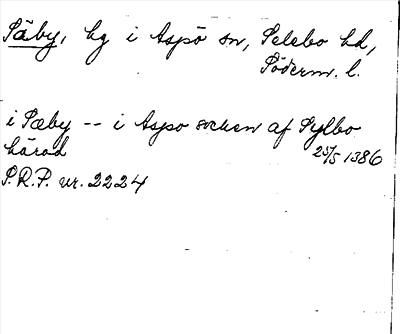 Säby, hg i Aspö sn, Selebo hd,
Söderm. l.
i Sæby -- i Aspo socken af Sylbo
härad 25/5 1386
S.R.P. nr. 2224